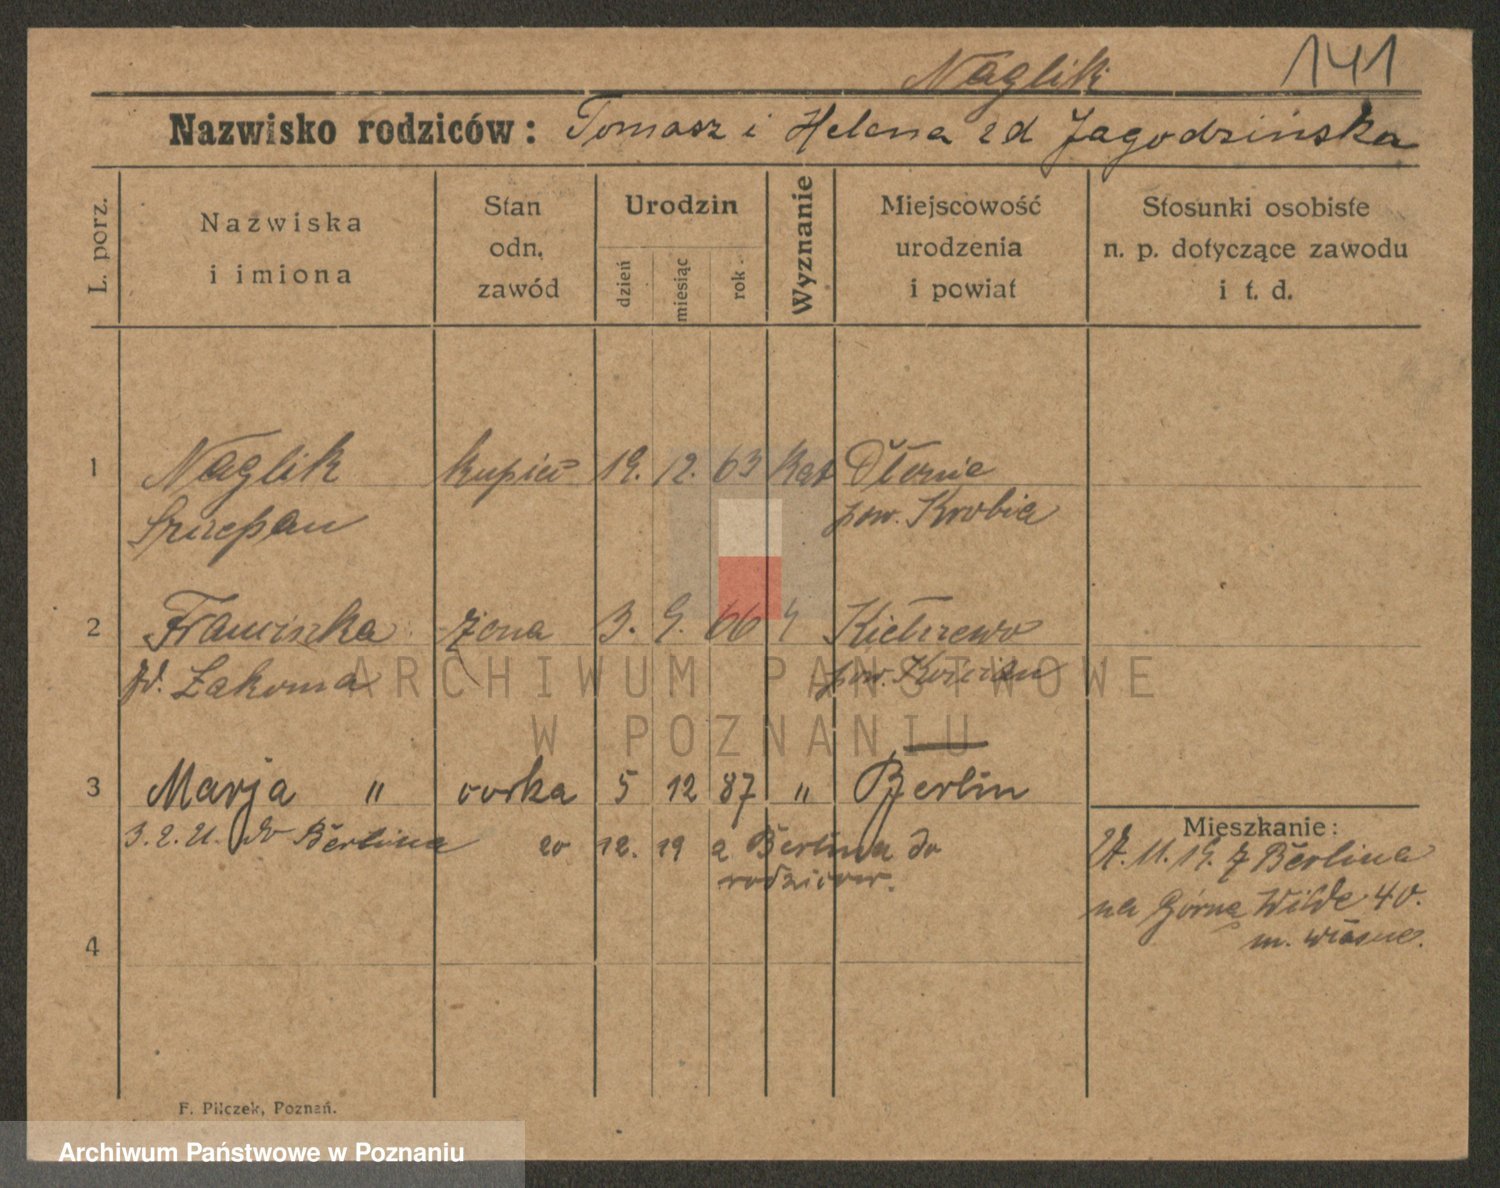 Naglik
141
Nazwisko rodziców: Tomasz i Helena zd Jagodzińska
L. porz.
Nazwiska
i imiona
Stan
odn,
zawód
Urodzin
dzień
miesiąc
rok
Wyznanie
Miejscowość
urodzenia
i powiat
Stosunki osobiste
n. p. dotyczące zawodu
i t. d.
1 Naglik kupiec 19. 12. 63 kat Dłonie
Szczepan pow. Krobia
2 Franciszka żona 3. 9. 66 Kiełczewo
zd. Łakoma pow. Kościan
3 Marja " córka 5 12 87 " Berlin
3. 2. 21. do Berlina 20 12. 19 z Berlina do
rodziców.
4
Mieszkanie:
27. 11. 19. z Berlina
na Górna Wilde 40.
m. własne.
F. Pilczek, Poznań.
ARCHIWUM PAŃSTWOWE
W POZNANIU
Archiwum Państwowe w Poznaniu